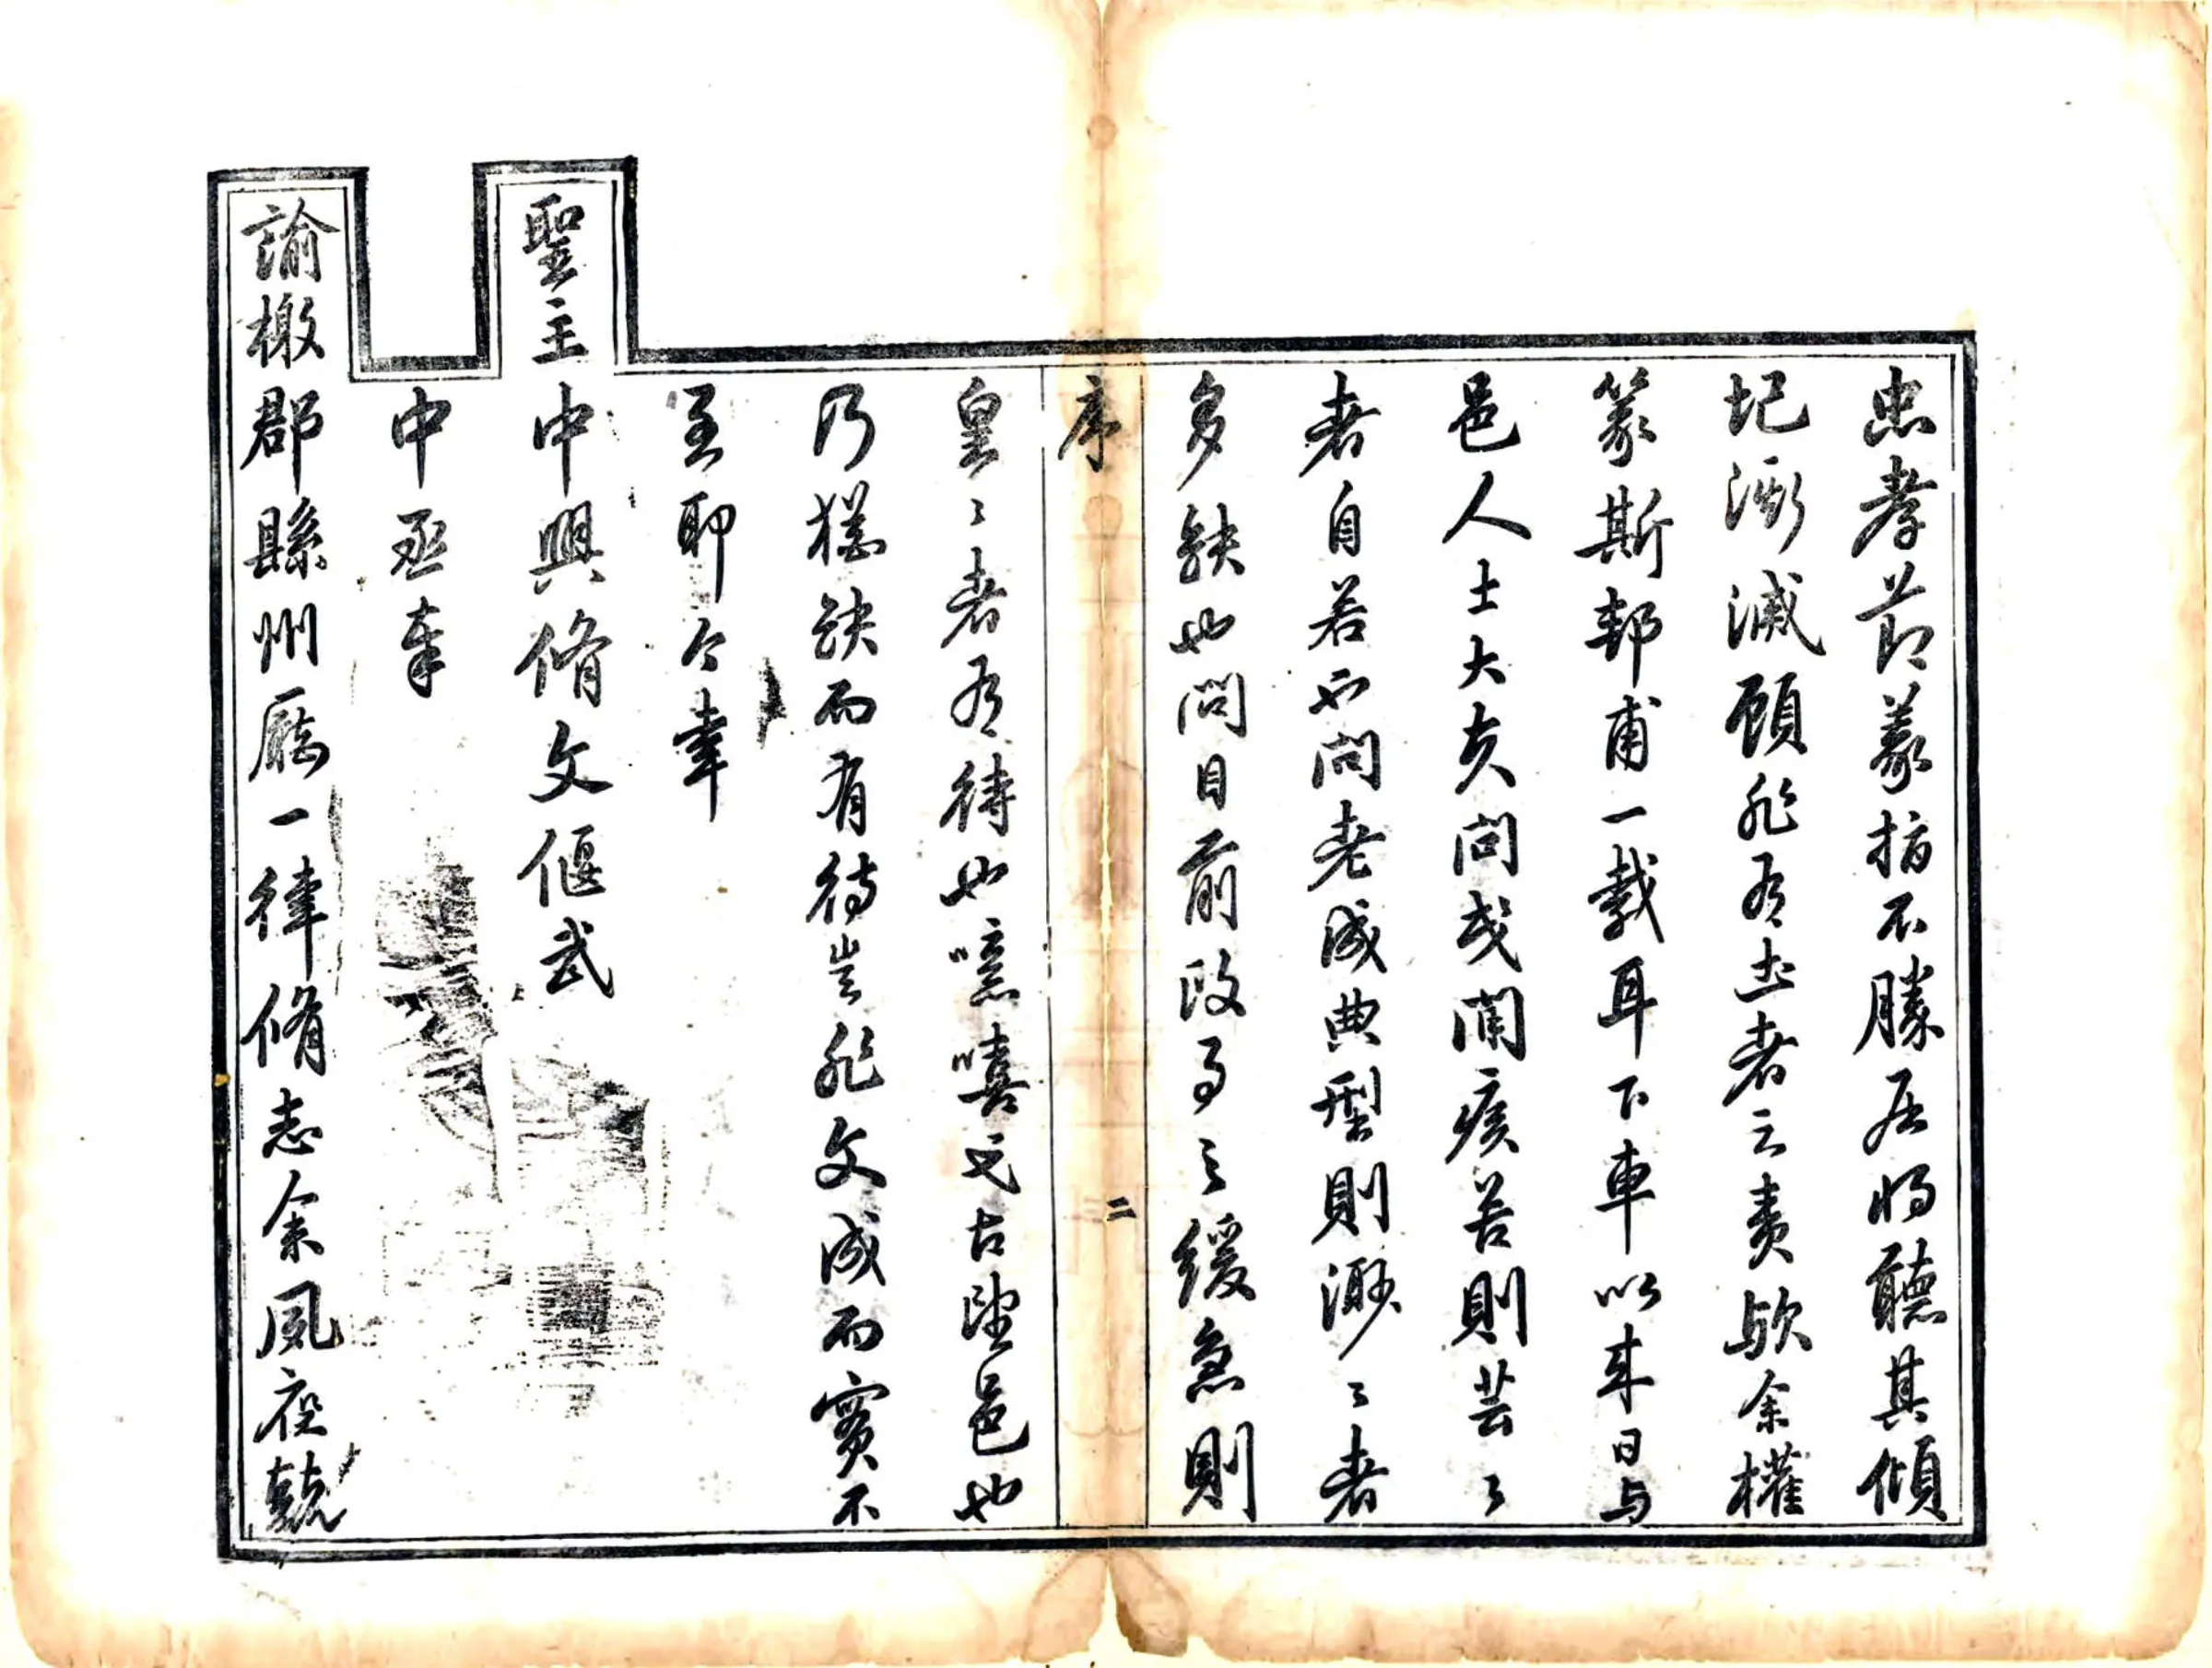 忠孝節義指不勝屈將聽其傾
圮漸滅顧非有土者之責歟余權
篆斯邦甫一載耳下車以來日与
邑人士大夫問或闻疾苦則芸〻
者自若也问老成典型則渺〻者
多缺也問目前政事之緩急則
序
二
皇〻者有待也噫嘻尤古陸邑也
乃猶缺而有待豈非文成而實不
至耶今幸
聖主中興脩文偃武
中丞奉
諭檄郡縣州廳一律脩志余夙夜兢